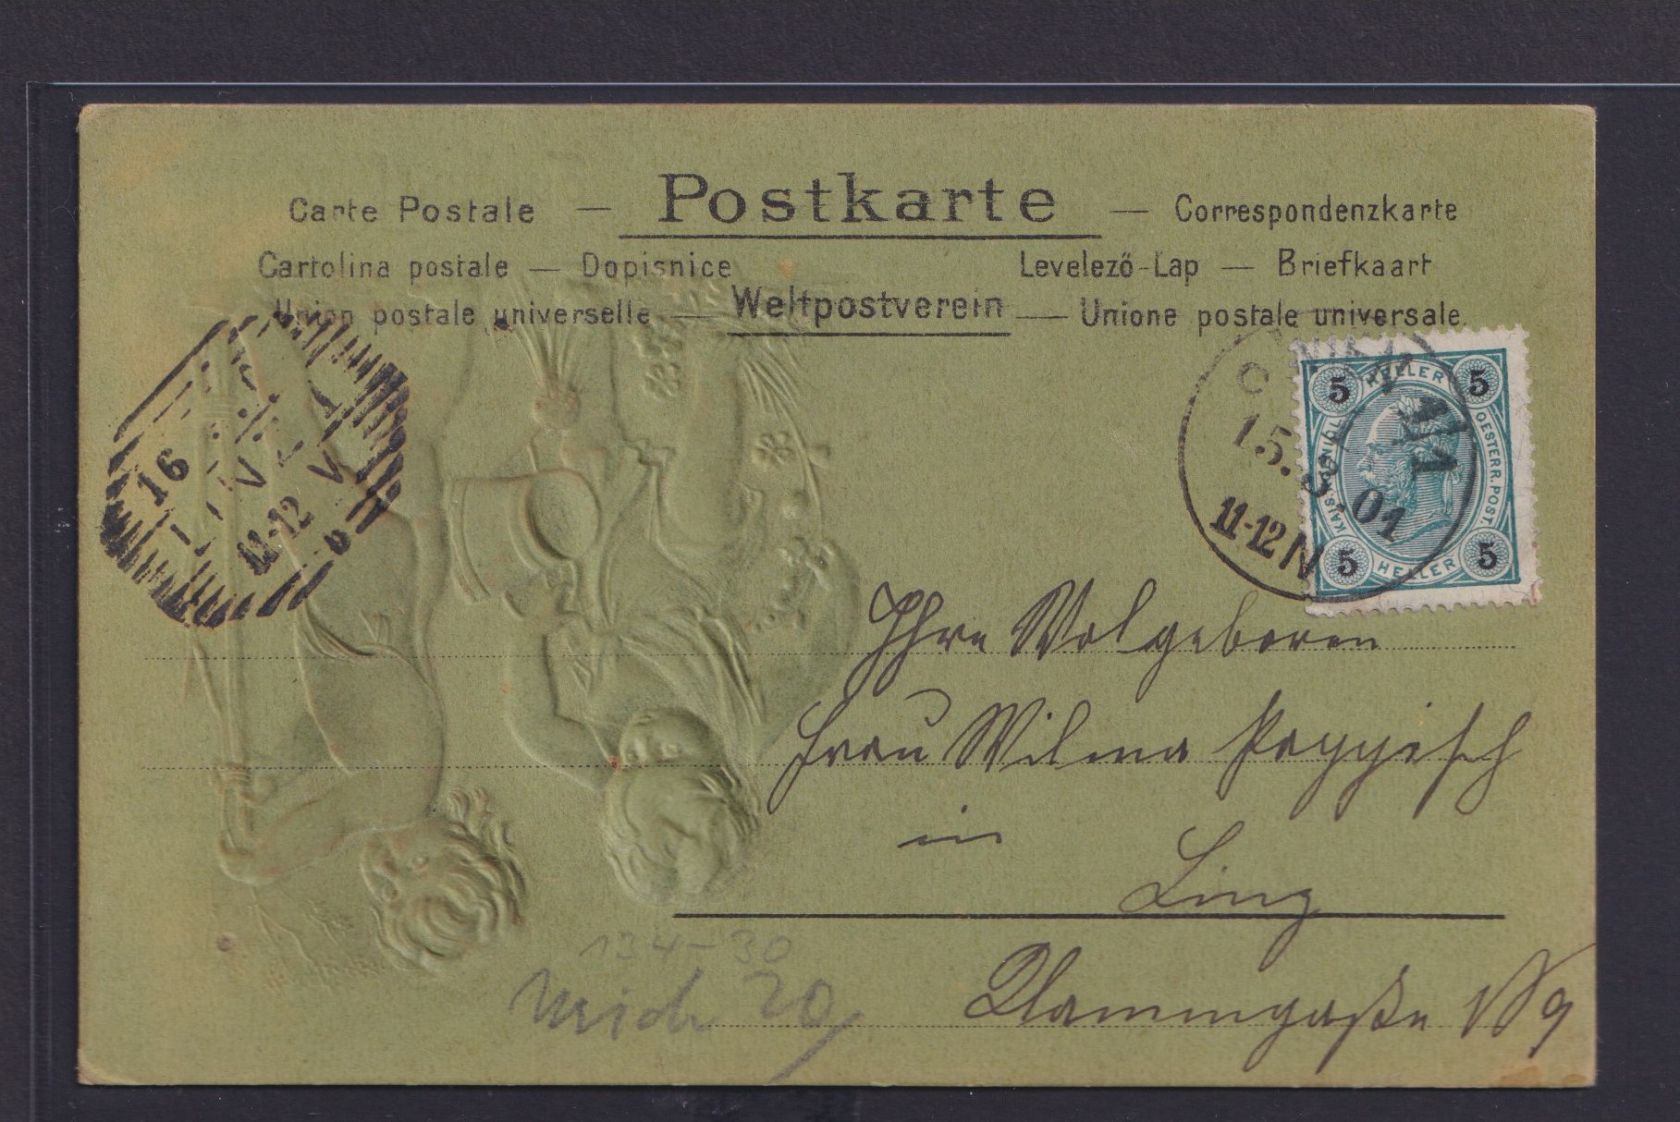 Carte Postale — Postkarte — Correspondenzkarte
Cartolina postale — Dopisnice Levelező-Lap — Briefkaart
Union postale universelle — Weltpostverein — Unione postale universale
15. 01
11-12 N
5 HELLER 5
KAIS. KÖNIGL. OESTERR. POST.
5 HELLER 5
16 V
11-12 V
Ihre Wolgeboren
Frau Wilma
in
Linz
134-30
Klammgaße
Mich 20